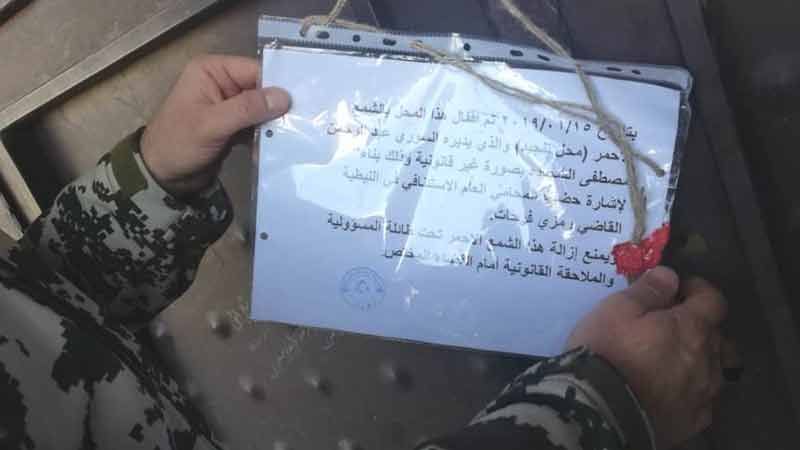 بتاريخ ٢٠١٩/٠١/١٥ تم اقفال هذا المحل بالشمع
الاحمر (محل تنجيد) والذي يديره السوري عبد الرحمن
مصطفى بصورة غير قانونية وذلك بناء
لإشارة حضرة المحامي العام الاستئنافي في النبطية
القاضي رمزي فرحات.
ويمنع إزالة هذا الشمع الاحمر تحت طائلة المسؤولية
والملاحقة القانونية أمام القضاء المختص.